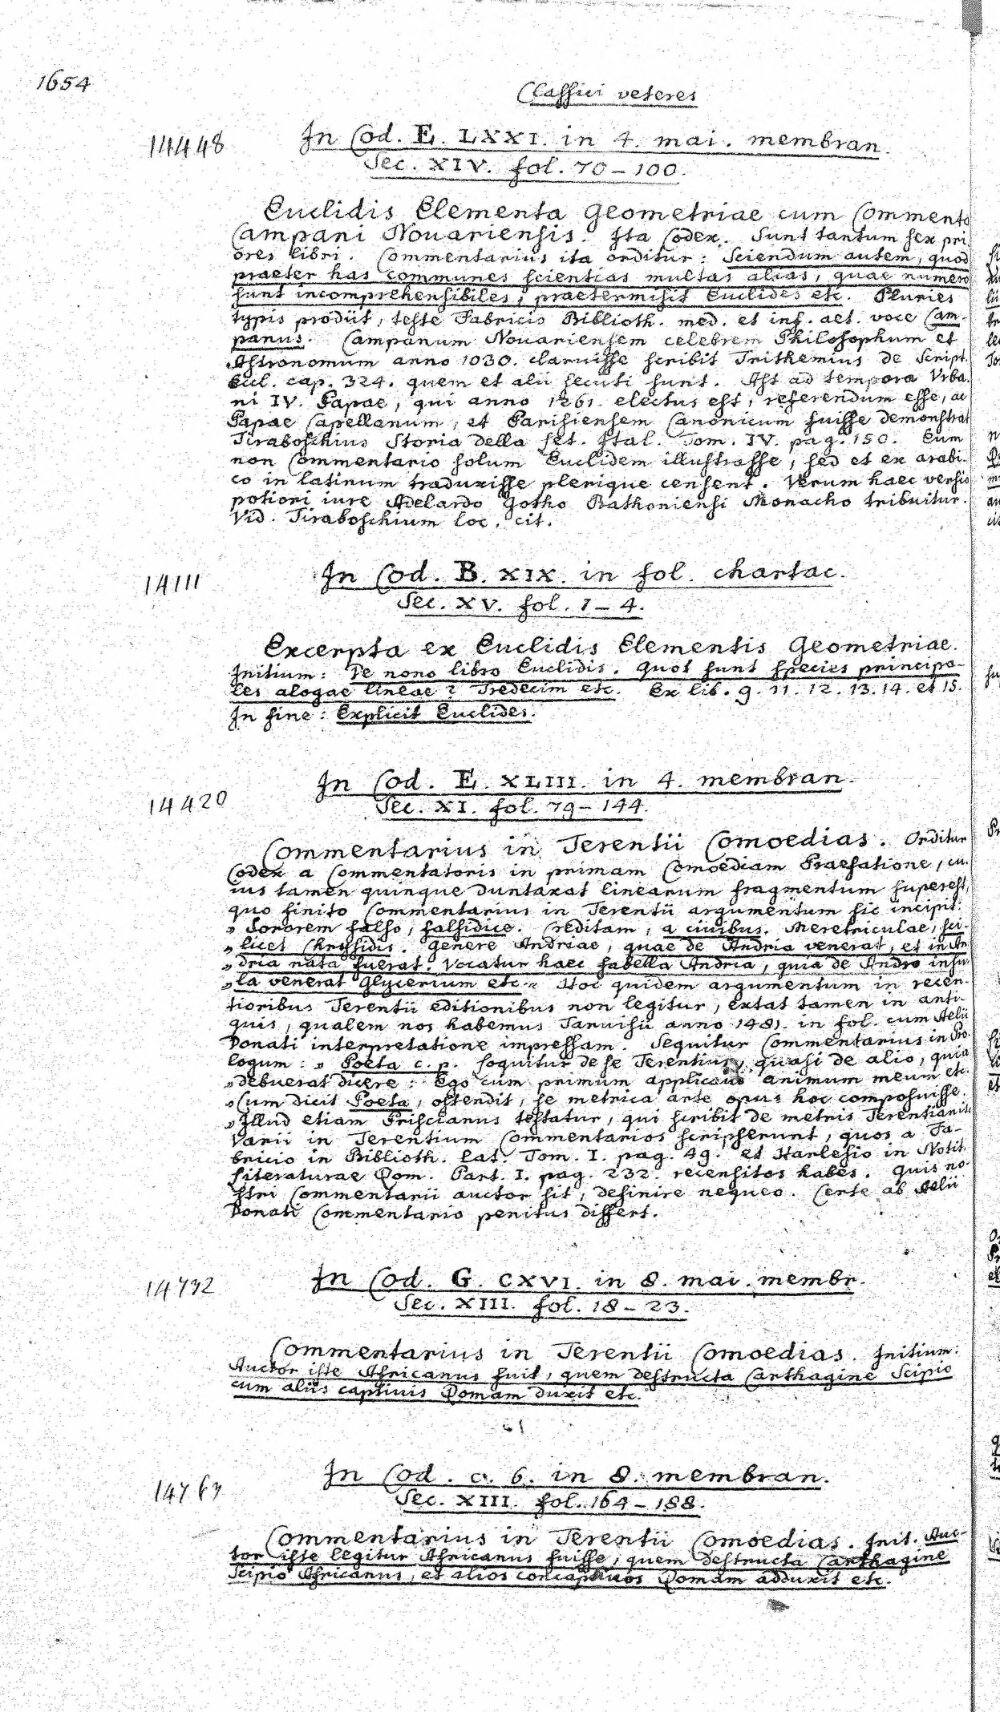 1654
Classici veteres
14448
In Cod. E. LXXI. in 4. mai. membran.
Sec. XIV. fol. 70-100.
Euclidis Elementa Geometriae cum Commento
Campani Nouariensis. Ita Codex. Sunt tantum sex pri
ores libri. Commentarius ita orditur: Sciendum autem, quod
praeter has communes scientias multas alias, quae numero
sunt incomprehensibiles, praetermisit Euclides etc. Pluries
typis prodiit, teste Fabricio Biblioth. med. et inf. aet. voce Cam-
panus. Campanum Nouariensem celebrem Philosophum et
Astronomum anno 1030. claruisse scribit Trithemius de Script.
Eccl. cap. 324. quem et alii secuti sunt. Ast ad tempora Vrba-
ni IV. Papae, qui anno 1261. electus est, referendum esse, ac
Papae Capellanum, et Parisiensem Canonicum fuisse demonstrat
Tiraboschius Storia della Let. Ital. Tom. IV. pag. 150. Eum
non Commentario solum Euclidem illustrasse, sed et ex arabi-
co in latinum traduxisse plerique censent. Verum haec versio
potiori iure Adelardo Gotho Bathoniensi Monacho tribuitur.
Vid. Tiraboschium loc. cit.
14111
In Cod. B. XIX. in fol. chartac.
Sec. XV. fol. 1-4.
Excerpta ex Euclidis Elementis Geometriae.
Initium: De nono libro Euclidis. Quot sunt species principa-
les alogae lineae? Tredecim etc. Ex lib. 9. 11. 12. 13. 14. et 15.
In fine: Explicit Euclides.
14420
In Cod. E. XLIII. in 4. membran.
Sec. XI. fol. 79-144.
Commentarius in Terentii Comoedias. Orditur
Codex a Commentatoris in primam Comoediam Praefatione, cu-
ius tamen quinque duntaxat linearum fragmentum superest,
quo finito Commentarius in Terentii argumentum sic incipit:
„ Sororem falso, falsidice. creditam, a ciuibus. Meretriculae, sci-
„ licet Chrysidis. genere Andriae, quae de Andria venerat, et in An
„ dria nata fuerat. Vocatur haec fabella Andria, quia de Andro insu
„ la venerat Glycerium etc. „ Hoc quidem argumentum in recen-
tioribus Terentii editionibus non legitur, extat tamen in anti-
quis, qualem nos habemus Taruisii anno 1481. in fol. cum Aelii
Donati interpretatione impressam. Sequitur Commentarius in Pro-
logum: „ Poeta c. p. loquitur de se Terentius, quasi de alio, quia
„ debuerat dicere: Ego cum primum applicaui animum meum etc.
„ Cum dicit Poeta, ostendit, se metrica arte opus hoc composuisse.
„ Illud etiam Priscianus testatur, qui scribit de metris Terentianis
Varii in Terentium Commentarios scripserunt, quos a Fa-
bricio in Biblioth. Lat. Tom. I. pag. 49. et Harlesio in Notit.
Literaturae Rom. Part. I. pag. 232. recensitos habes. Quis no-
stri Commentarii auctor sit, definire nequeo. Certe ab Aelii
Donati Commentario penitus differt.
14732
In Cod. G. CXVI. in 8. mai. membr.
Sec. XIII. fol. 18-23.
Commentarius in Terentii Comoedias. Initium:
Auctor iste Africanus fuit, quem destructa Carthagine Scipio
cum aliis captiuis Romam duxit etc.
In Cod. c. 6. in 8. membran.
Sec. XIII. fol. 164-188.
Commentarius in Terentii Comoedias. Init. Auc-
tor iste legitur Africanus fuisse, quem destructa Carthagine
Scipio Africanus, et alios concaptiuos Romam adduxit etc.